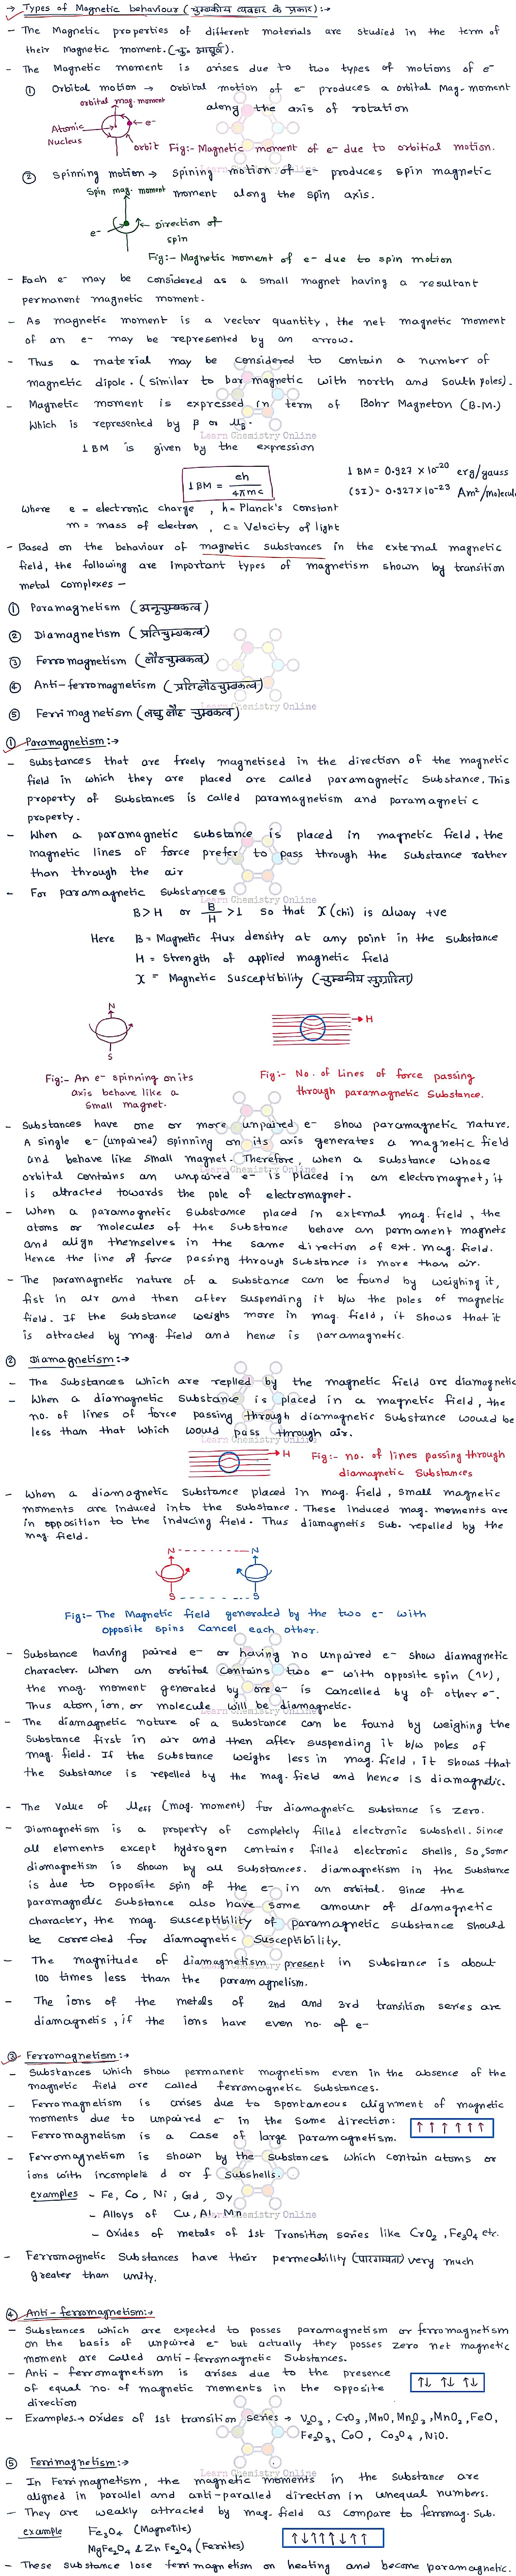 → Types of Magnetic behaviour (चुम्बकीय व्यवहार के प्रकार):→
- The Magnetic properties of different materials are studied in the term of
their Magnetic moment. (चु० आघूर्ण).
- The Magnetic moment is arises due to two types of motions of e-
① Orbital motion → Orbital motion of e- produces a orbital Mag. moment
along the axis of rotation
orbital mag. moment
e-
Atomic
Nucleus
orbit
Fig:- Magnetic moment of e- due to orbitial motion.
② Spinning motion → Spining motion of e- produces spin magnetic
moment along the spin axis.
Spin mag. moment
e-
Direction of
spin
Fig:- Magnetic moment of e- due to spin motion
- Each e- may be considered as a small magnet having a resultant
permanent magnetic moment.
- As magnetic moment is a vector quantity, the net magnetic moment
of an e- may be represented by an arrow.
- Thus a material may be considered to contain a number of
magnetic dipole. (Similar to bar magnetic with north and South poles).
- Magnetic moment is expressed in term of Bohr Magneton (B.M.)
Which is represented by β or μB.
Learn Chemistry Online
1 BM is given by the expression
1 BM = eh / 4πmc
1 BM = 0.927 × 10-20 erg/gauss
(SI) = 0.927 × 10-23 Am2/molecule
Where e = electronic charge, h = Planck's constant
m = mass of electron, c = Velocity of light
- Based on the behaviour of magnetic substances in the external magnetic
field, the following are important types of magnetism shown by transition
metal complexes -
① Paramagnetism (अनुचुम्बकत्व)
② Diamagnetism (प्रतिचुम्बकत्व)
③ Ferromagnetism (लौहचुम्बकत्व)
④ Anti-ferromagnetism (प्रतिलौहचुम्बकत्व)
⑤ Ferrimagnetism (लघु लौह चुम्बकत्व)
Learn Chemistry Online
① Paramagnetism:→
- Substances that are freely magnetised in the direction of the magnetic
field in which they are placed are called paramagnetic Substance. This
property of Substances is called paramagnetism and paramagnetic
property.
- When a paramagnetic substance is placed in magnetic field, the
magnetic lines of force prefer to pass through the Substance rather
than through the air
- For paramagnetic Substances
Learn Chemistry Online
B > H or B/H > 1 so that χ (chi) is alway +ve
Here B = Magnetic flux density at any point in the substance
H = Strength of applied magnetic field
χ = Magnetic Susceptibility (चुम्बकीय सुग्राहिता)
N
S
H
Fig:- An e- spinning on its
axis behave like a
Small magnet.
Fig:- No. of Lines of force passing
through paramagnetic Substance.
- Substances have one or more unpaired e- show paramagnetic nature.
A single e- (unpaired) spinning on its axis generates a magnetic field
and behave like small magnet. Therefore, when a substance whose
orbital contains an unpaired e- is placed in an electromagnet, it
is attracted towards the pole of electromagnet.
Learn Chemistry Online
- When a paramagnetic Substance placed in external mag. field, the
atoms or molecules of the Substance behave an permanent magnets
and align themselves in the same direction of ext. mag. field.
Hence the line of force passing through Substance is more than air.
- The paramagnetic nature of a substance can be found by weighing it,
fist in air and then after suspending it b/w the poles of magnetic
field. If the Substance weighs more in mag. field, it shows that it
is attracted by mag. field and hence is paramagnetic.
② Diamagnetism:→
- The Substances which are replled by the magnetic field are diamagnetic
- When a diamagnetic Substance is placed in a magnetic field, the
no. of lines of force passing through diamagnetic Substance would be
less than that which would pass through air.
Learn Chemistry Online
H
Fig:- no. of lines passing through
diamagnetic Substances
- When a diamagnetic Substance placed in mag. field, small magnetic
moments are induced into the substance. These induced mag. moments are
in opposition to the inducing field. Thus diamagnetis Sub. repelled by the
mag. field.
N N
S S
Fig:- The Magnetic field generated by the two e- with
opposite spins Cancel each other.
- Substance having paired e- or having no unpaired e- show diamagnetic
character. When an orbital contains two e- with opposite spin (↑↓),
the mag. moment generated by one e- is cancelled by of other e-.
Thus atom, ion, or molecule will be diamagnetic.
Learn Chemistry Online
- The diamagnetic nature of a substance can be found by weighing the
Substance first in air and then after suspending it b/w poles of
mag. field. If the Substance weighs less in mag. field, it shows that
the substance is repelled by the mag. field and hence is diamagnetic.
- The value of μeff (mag. moment) for diamagnetic substance is zero.
- Diamagnetism is a property of completely filled electronic subshell. Since
all elements except hydrogen contains filled electronic shells, So, some
diamagnetism is shown by all substances. diamagnetism in the Substance
is due to opposite spin of the e- in an orbital. Since the
paramagnetic Substance also have some amount of diamagnetic
character, the mag. susceptibility of paramagnetic substance should
be corrected for diamagnetic Susceptibility.
- The magnitude of diamagnetism present in substance is about
Learn Chemistry Online
100 times less than the paramagnelism.
- The ions of the metals of 2nd and 3rd transition series are
diamagnetis, if the ions have even no. of e-
③ Ferromagnetism:→
- Substances which show permanent magnetism even in the absence of the
magnetic field are called ferromagnetic Substances.
- Ferromagnetism is arises due to spontaneous alignment of magnetic
moments due to unpaired e- in the Same direction: ↑ ↑ ↑ ↑ ↑ ↑
- Ferromagnetism is a case of large paramagnetism.
- Ferromagnetism is shown by the substances which contain atoms or
ions with incomplete d or f Subshells.
examples - Fe, Co, Ni, Gd, Dy
- Alloys of Cu, Al, Mn
Learn Chemistry Online
- Oxides of metals of 1st Transition series like CrO2, Fe3O4 etc.
- Ferromagnetic Substances have their permeability (पारगम्यता) very much
greater than unity.
④ Anti-ferromagnetism:→
- Substances which are expected to posses paramagnetism or ferromagnetism
on the basis of unpaired e- but actually they posses zero net magnetic
moment are called anti-ferromagnetic Substances.
- Anti-ferromagnetism is arises due to the presence
of equal no. of magnetic moments in the opposite
direction
↑↓ ↑↓ ↑↓
- Examples.→ oxides of 1st transition series → V2O3, CrO3, MnO, Mn2O3, MnO2, FeO,
Fe2O3, CoO, Co3O4, NiO.
⑤ Ferrimagnetism:→
Learn Chemistry Online
- In Ferrimagnetism, the magnetic moments in the Substance are
aligned in parallel and anti-paralled direction in unequal numbers.
- They are weakly attracted by mag. field as compare to ferromag. Sub.
example Fe3O4 (Magnetite)
MgFe2O4 & ZnFe2O4 (Ferrites)
↑↓↑↑↑↓↑↑
- These substance lose ferrimagnetism on heating and become paramagnetic.